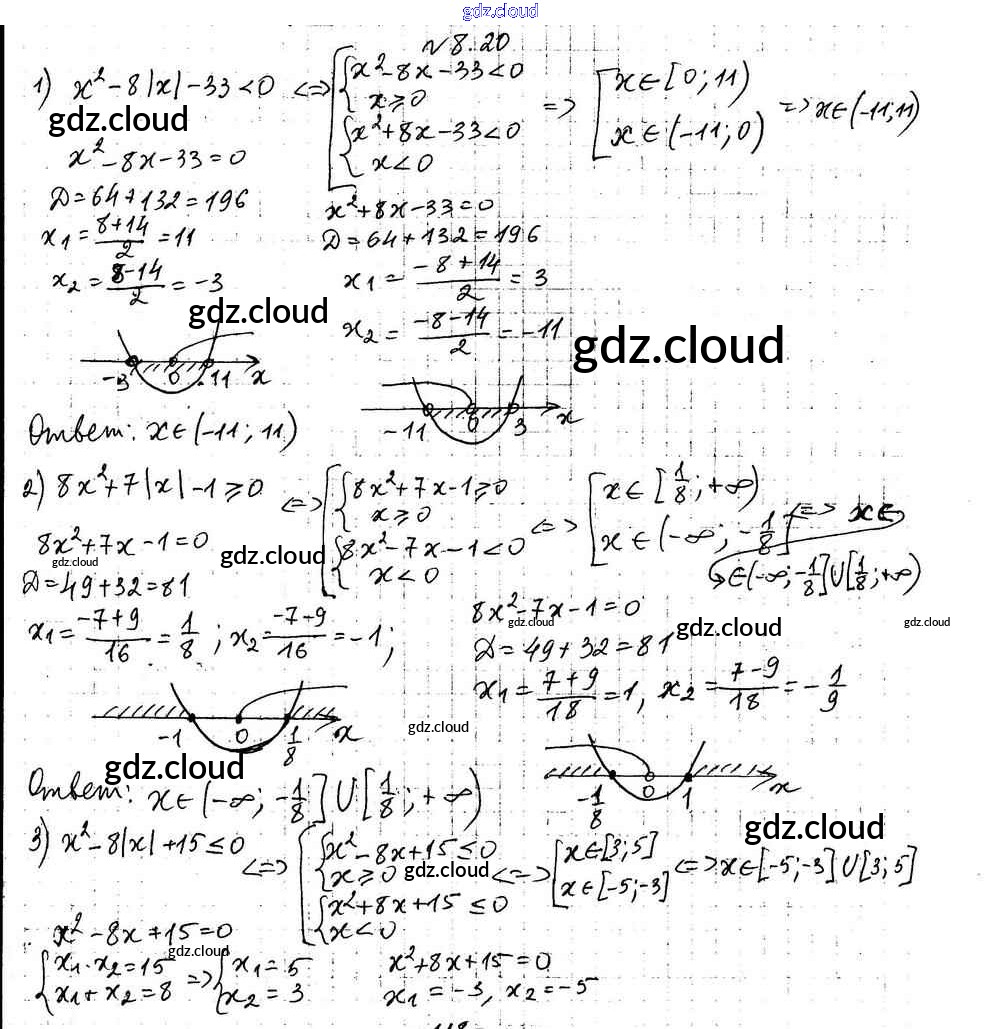 gdz.cloud
№8.20
1) x²-8|x|-33<0 <=> [ { x²-8x-33<0
x≥0
{ x²+8x-33<0
x<0
=> [ x∈[0;11)
x∈(-11;0) => x∈(-11;11)
gdz.cloud
x²-8x-33=0
Д=64+132=196
x1=(8+14)/2=11
x2=(8-14)/2=-3
x²+8x-33=0
Д=64+132=196
x1=(-8+14)/2=3
x2=(-8-14)/2=-11
gdz.cloud
gdz.cloud
-3 0 11 x
-11 0 3 x
Ответ: x∈(-11;11)
2) 8x²+7|x|-1≥0 <=> [ { 8x²+7x-1≥0
x≥0
{ 8x²-7x-1<0
x<0
<=> [ x∈[1/8;+∞)
x∈(-∞;-1/8] <=> x∈
∈(-∞;-1/8]U[1/8;+∞)
8x²+7x-1=0
gdz.cloud
gdz.cloud
Д=49+32=81
x1=(-7+9)/16=1/8; x2=(-7-9)/16=-1;
8x²-7x-1=0
gdz.cloud
gdz.cloud
gdz.cloud
Д=49+32=81
x1=(7+9)/18=1, x2=(7-9)/18=-1/9
-1 0 1/8 x
gdz.cloud
-1/8 0 1 x
gdz.cloud
Ответ: x∈(-∞;-1/8]U[1/8;+∞)
gdz.cloud
3) x²-8|x|+15≤0 <=> [ { x²-8x+15≤0
x≥0
{ x²+8x+15≤0
x<0
gdz.cloud
<=> [ x∈[3;5]
x∈[-5;-3] <=> x∈[-5;-3]U[3;5]
x²-8x+15=0
gdz.cloud
{ x1·x2=15
x1+x2=8 => { x1=5
x2=3
x²+8x+15=0
x1=-3, x2=-5